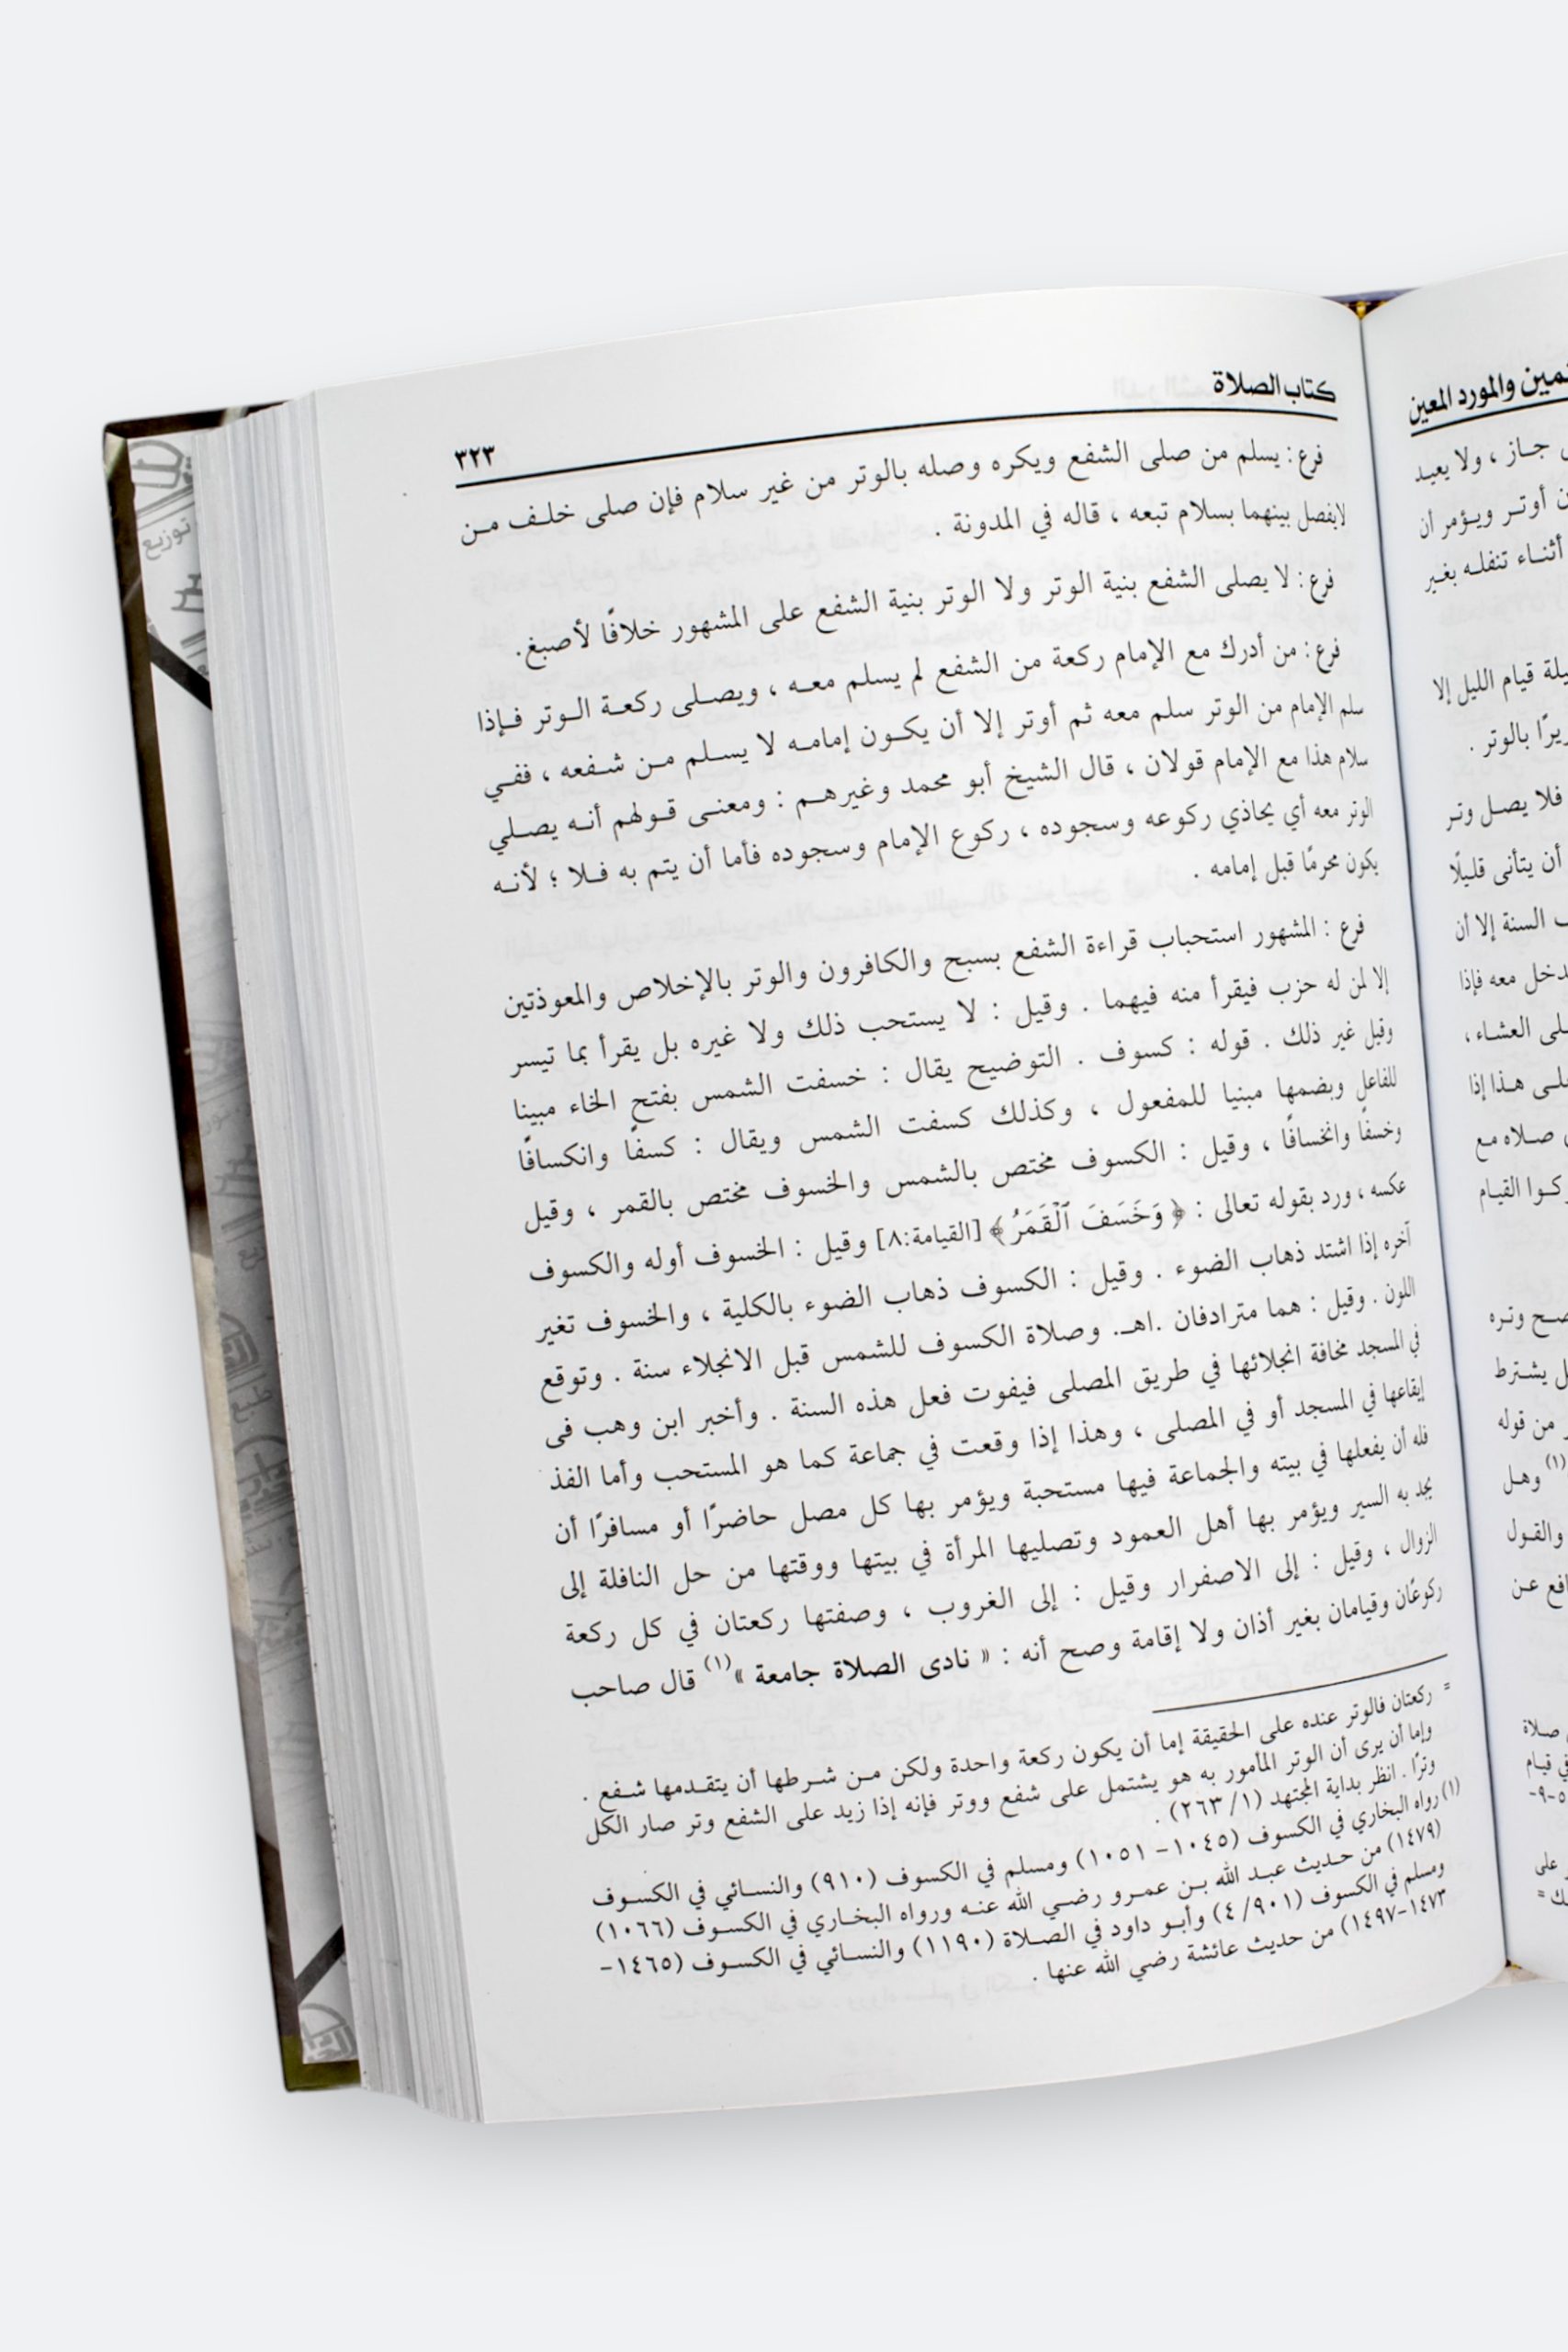 ـمين والمورد المعين
جـاز ، ولا يعيـد
أوتـر ويـؤمر أن
أثنـاء تنفلـه بغـير
قيام الليل إلا
بالوتر .
فلا يصـل وتـر
أن يتأنى قليلًا
السنة إلا أن
معه فإذا
العشـاء ،
هـذا إذا
صـلاه مـع
القيـام
وتـره
يشـترط
من قوله
(١) وهـل
والقـول
عـن
صـلاة
في قيـام
٩-
على
=
كتاب الصلاة
٣٢٣
فرع : يسلم من صلى الشفع ويكره وصله بالوتر من غير سلام فإن صلى خلـف مـن
لايفصل بينهما بسلام تبعه ، قاله في المدونة .
فرع : لا يصلى الشفع بنية الوتر ولا الوتر بنية الشفع على المشهور خلافًا لأصبغ.
فرع : من أدرك مع الإمام ركعة من الشفع لم يسلم معـه ، ويصـلى ركعـة الـوتر فـإذا
سلم الإمام من الوتر سلم معه ثم أوتر إلا أن يكـون إمامـه لا يسـلم مـن شـفعه ، ففـي
سلام هذا مع الإمام قولان ، قال الشيخ أبو محمد وغيرهـم : ومعنـى قـولهم أنـه يصـلي
الوتر معه أي يحاذي ركوعه وسجوده ، ركوع الإمام وسجوده فأما أن يتم به فـلا ؛ لأنـه
يكون محرمًا قبل إمامه .
فرع : المشهور استحباب قراءة الشفع بسبح والكافرون والوتر بالإخلاص والمعوذتين
إلا لمن له حزب فيقرأ منه فيهما . وقيل : لا يستحب ذلك ولا غيره بل يقرأ بما تيسر
وقيل غير ذلك . قوله : كسوف . التوضيح يقال : خسفت الشمس بفتح الخاء مبينا
للفاعل وبضمها مبنيا للمفعول ، وكذلك كسفت الشمس ويقال : كسفًا وانكسافًا
وخسفًا وانخسافًا ، وقيل : الكسوف مختص بالشمس والخسوف مختص بالقمر ، وقيل
عكسه ، ورد بقوله تعالى : ﴿ وَخَسَفَ ٱلْقَمَرُ ﴾ [القيامة:٨] وقيل : الخسوف أوله والكسوف
آخره إذا اشتد ذهاب الضوء . وقيل : الكسوف ذهاب الضوء بالكلية ، والخسوف تغير
اللون . وقيل : هما مترادفان .اهـ. وصلاة الكسوف للشمس قبل الانجلاء سنة . وتوقع
في المسجد مخافة انجلائها في طريق المصلى فيفوت فعل هذه السنة . وأخبر ابن وهب فى
إيقاعها في المسجد أو في المصلى ، وهذا إذا وقعت في جماعة كما هو المستحب وأما الفذ
فله أن يفعلها في بيته والجماعة فيها مستحبة ويؤمر بها كل مصل حاضرًا أو مسافرًا أن
يجد به السير ويؤمر بها أهل العمود وتصليها المرأة في بيتها ووقتها من حل النافلة إلى
الزوال ، وقيل : إلى الاصفرار وقيل : إلى الغروب ، وصفتها ركعتان في كل ركعة
ركوعًان وقيامان بغير أذان ولا إقامة وصح أنه : « نادى الصلاة جامعة »(١) قال صاحب
= ركعتان فالوتر عنده على الحقيقة إما أن يكون ركعة واحدة ولكن مـن شـرطها أن يتقـدمها شـفع .
وإما أن يرى أن الوتر المأمور به هو يشتمل على شفع ووتر فإنه إذا زيد على الشفع وتر صار الكل
وترًا . انظر بداية المجتهد (١/ ٢٦٣) .
(١) رواه البخاري في الكسوف (١٠٤٥- ١٠٥١) ومسلم في الكسوف (٩١٠) والنسـائي في الكسـوف
(١٤٧٩) من حـديث عبـد الله بـن عمـرو رضـي الله عنـه ورواه البخـاري في الكسـوف (١٠٦٦)
ومسلم في الكسوف (٩٠١/ ٤) وأبـو داود في الصـلاة (١١٩٠) والنسـائي في الكسـوف (١٤٦٥-
١٤٧٣-١٤٩٧) من حديث عائشة رضي الله عنها .
توزيع